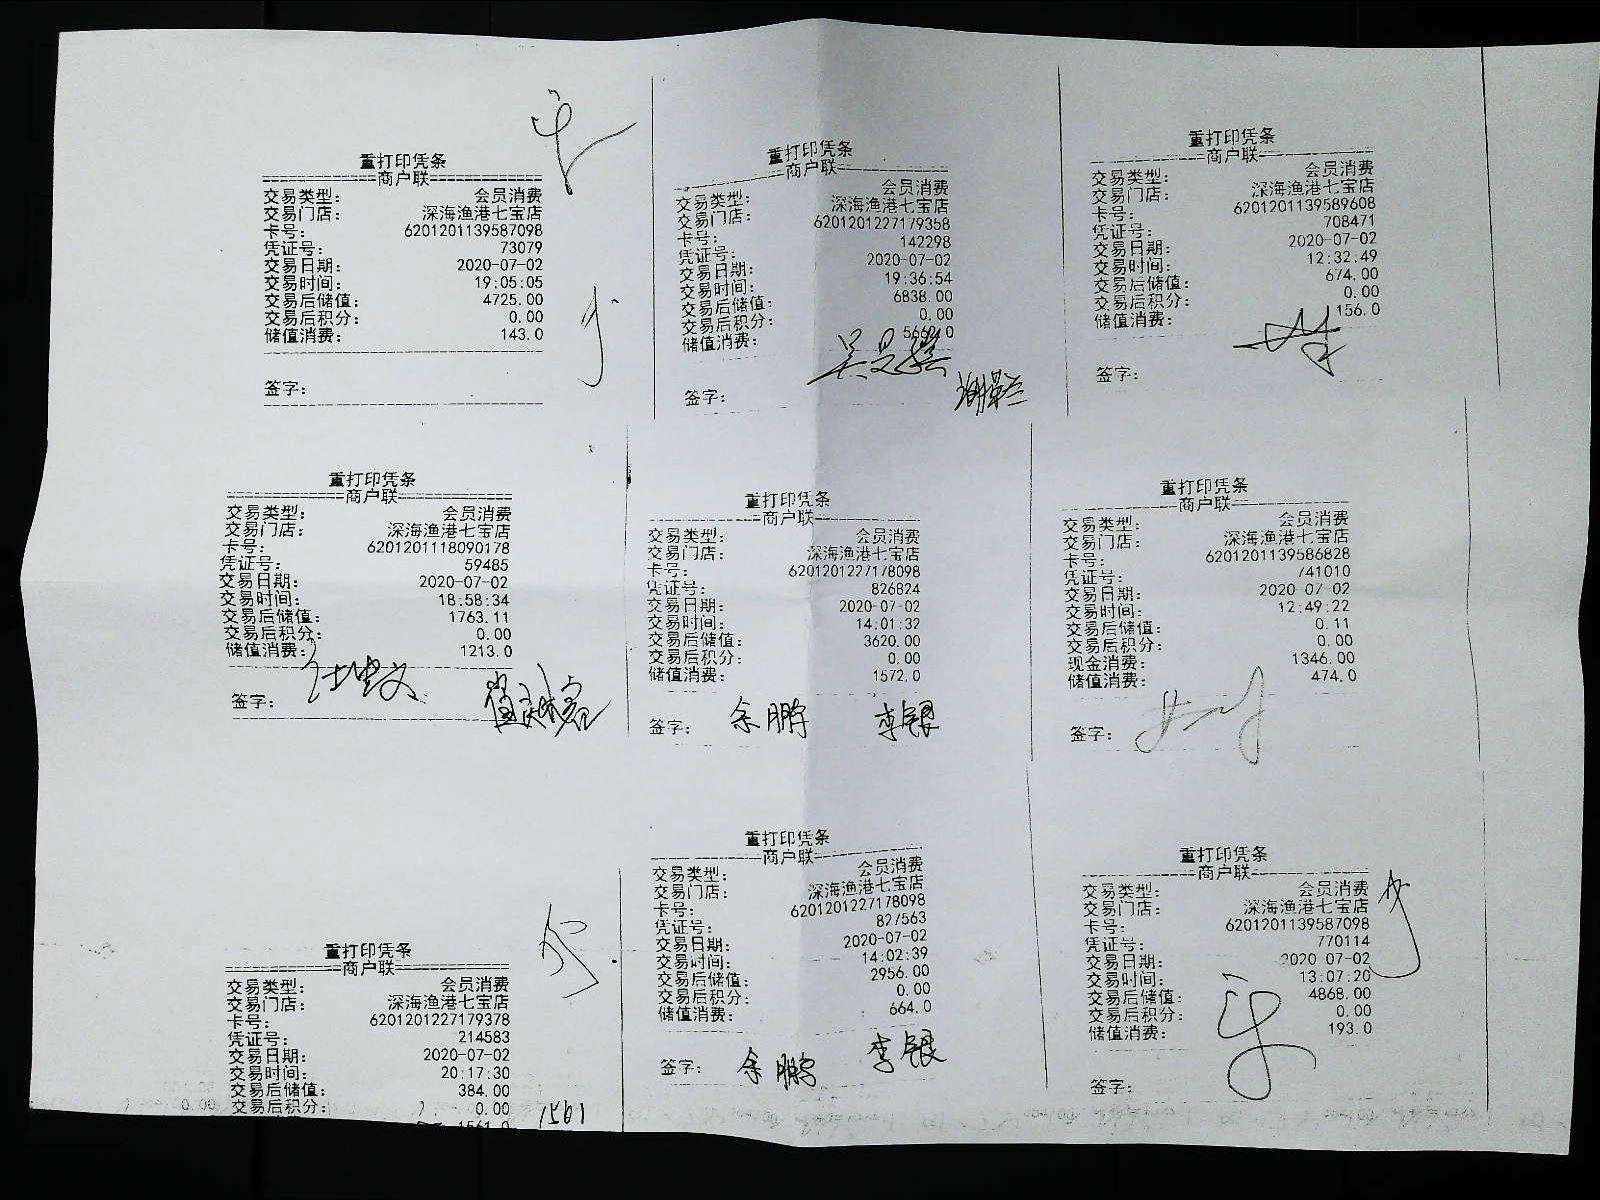 重打印凭条
商户联
交易类型: 会员消费
交易门店: 深海渔港七宝店
卡号: 6201201139587098
凭证号: 73079
交易日期: 2020-07-02
交易时间: 19:05:05
交易后储值: 4725.00
交易后积分: 0.00
储值消费: 143.0
签字:
重打印凭条
商户联
交易类型: 会员消费
交易门店: 深海渔港七宝店
卡号: 6201201227179358
凭证号: 142298
交易日期: 2020-07-02
交易时间: 19:36:54
交易后储值: 6838.00
交易后积分: 0.00
储值消费:
签字:
重打印凭条
商户联
交易类型: 会员消费
交易门店: 深海渔港七宝店
卡号: 6201201139589608
凭证号: 708471
交易日期: 2020-07-02
交易时间: 12:32:49
交易后储值: 674.00
交易后积分: 0.00
储值消费: 156.0
签字:
重打印凭条
商户联
交易类型: 会员消费
交易门店: 深海渔港七宝店
卡号: 6201201118090178
凭证号: 59485
交易日期: 2020-07-02
交易时间: 18:58:34
交易后储值: 1763.11
交易后积分: 0.00
储值消费: 1213.0
签字:
重打印凭条
商户联
交易类型: 会员消费
交易门店: 深海渔港七宝店
卡号: 6201201227178098
凭证号: 826824
交易日期: 2020-07-02
交易时间: 14:01:32
交易后储值: 3620.00
交易后积分: 0.00
储值消费: 1572.0
签字: 余鹏 李银
重打印凭条
商户联
交易类型: 会员消费
交易门店: 深海渔港七宝店
卡号: 6201201139586828
凭证号: 741010
交易日期: 2020-07-02
交易时间: 12:49:22
交易后储值: 0.11
交易后积分: 0.00
现金消费: 1346.00
储值消费: 474.0
签字:
重打印凭条
商户联
交易类型: 会员消费
交易门店: 深海渔港七宝店
卡号: 6201201227179378
凭证号: 214583
交易日期: 2020-07-02
交易时间: 20:17:30
交易后储值: 384.00
交易后积分: 0.00
1561.0 1561
重打印凭条
商户联
交易类型: 会员消费
交易门店: 深海渔港七宝店
卡号: 6201201227178098
凭证号: 827563
交易日期: 2020-07-02
交易时间: 14:02:39
交易后储值: 2956.00
交易后积分: 0.00
储值消费: 664.0
签字: 余鹏 李银
重打印凭条
商户联
交易类型: 会员消费
交易门店: 深海渔港七宝店
卡号: 6201201139587098
凭证号: 770114
交易日期: 2020-07-02
交易时间: 13:07:26
交易后储值: 4868.00
交易后积分: 0.00
储值消费: 193.0
签字: